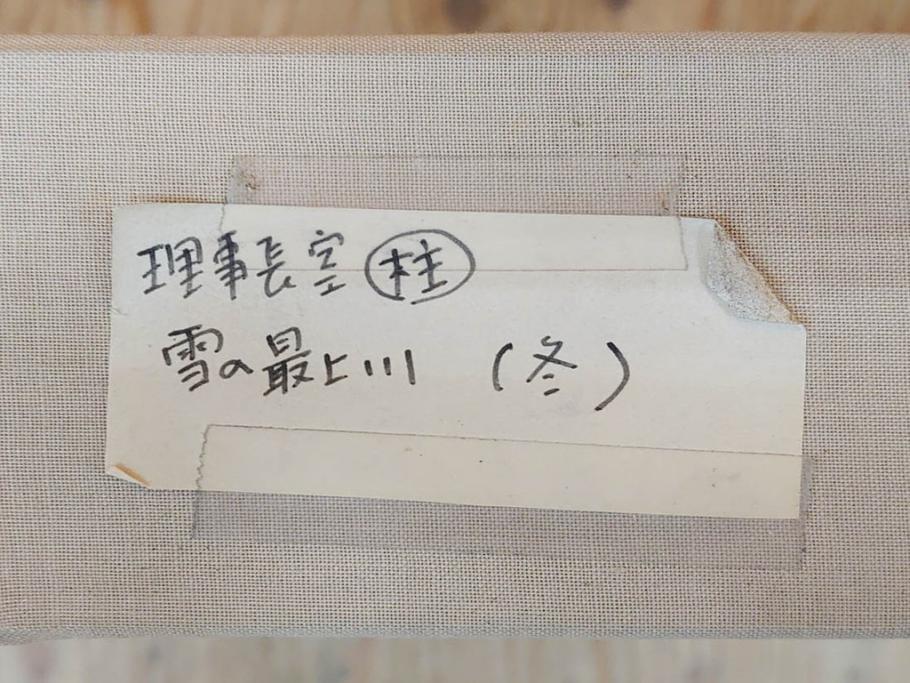 理事長室 柱
雪の最上川 (冬)